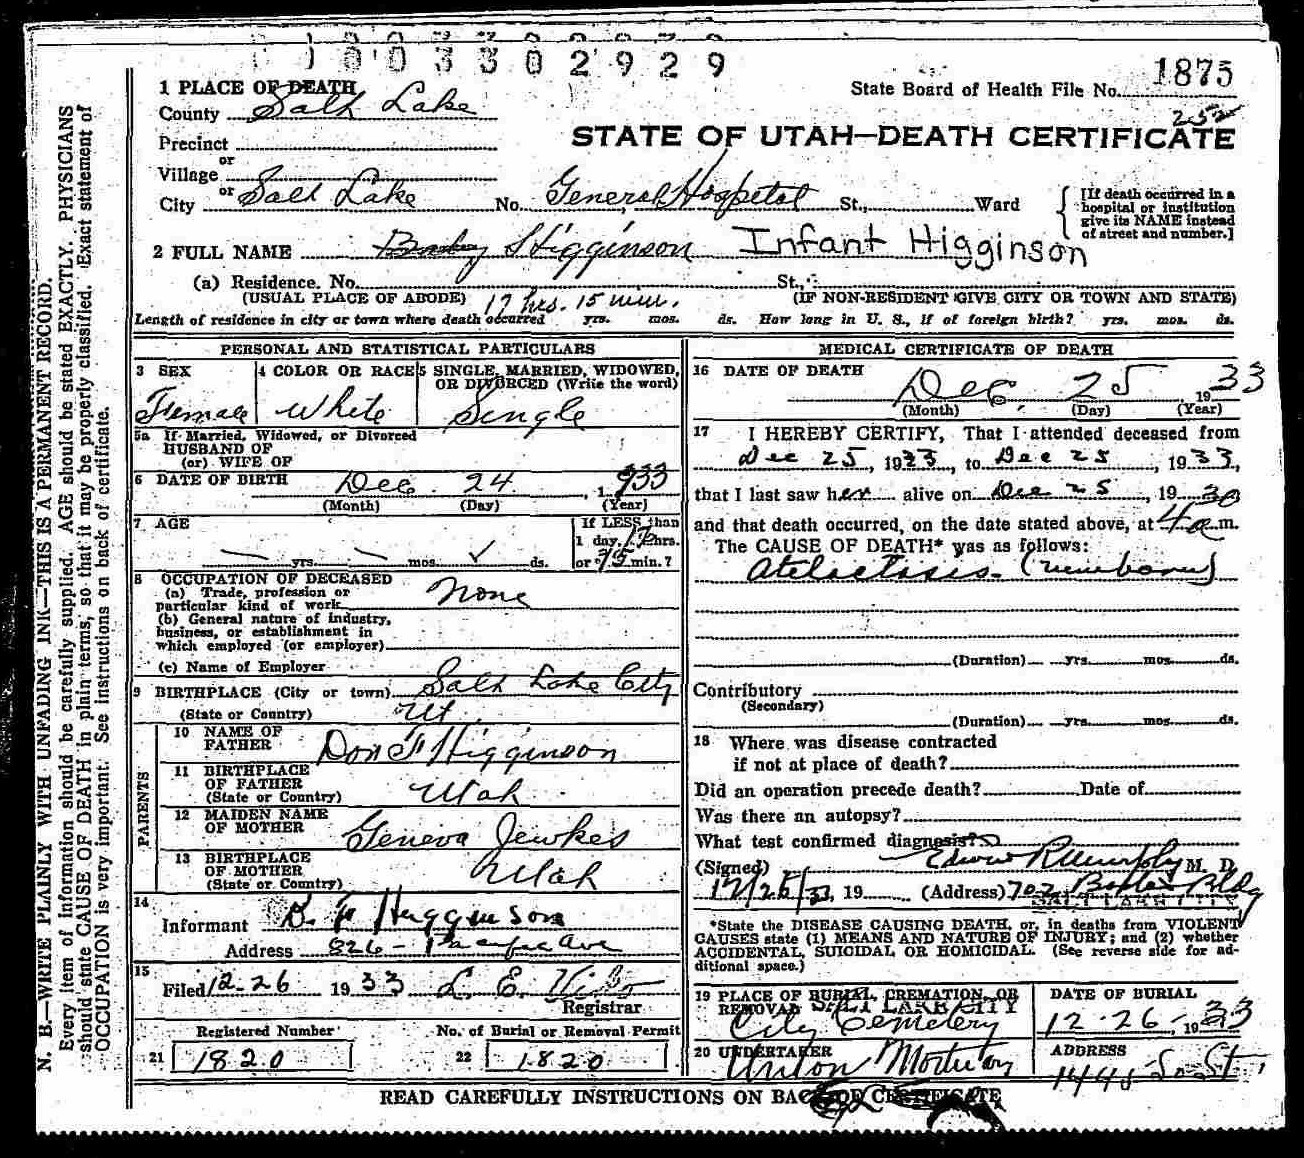 1003302929
1 PLACE OF DEATH
State Board of Health File No. 1875
County Salt Lake
252
STATE OF UTAH—DEATH CERTIFICATE
Precinct
or
Village
or
City Salt Lake No. General Hospital St., Ward
[If death occurred in a
hospital or institution
give its NAME instead
of street and number.]
2 FULL NAME Baby Higginson Infant Higginson
(a) Residence. No. St.,
(USUAL PLACE OF ABODE) 17 hrs. 15 min. (IF NON-RESIDENT GIVE CITY OR TOWN AND STATE)
Length of residence in city or town where death occurred yrs. mos. ds. How long in U. S., if of foreign birth? yrs. mos. ds.
PERSONAL AND STATISTICAL PARTICULARS
3 SEX 4 COLOR OR RACE 5 SINGLE, MARRIED, WIDOWED,
OR DIVORCED (Write the word)
Female White Single
5a If Married, Widowed, or Divorced
HUSBAND OF
(or) WIFE OF
6 DATE OF BIRTH Dec. 24 , 1933
(Month) (Day) (Year)
7 AGE If LESS than
1 day, 17 hrs.
— yrs. — mos. ✓ ds. or 15 min.?
8 OCCUPATION OF DECEASED
(a) Trade, profession or
particular kind of work None
(b) General nature of industry,
business, or establishment in
which employed (or employer)
(c) Name of Employer
9 BIRTHPLACE (City or town) Salt Lake City
(State or Country) Ut.
PARENTS
10 NAME OF
FATHER Don F Higginson
11 BIRTHPLACE
OF FATHER
(State or Country) Utah
12 MAIDEN NAME
OF MOTHER Geneva Jewkes
13 BIRTHPLACE
OF MOTHER
(State or Country) Utah
14
Informant D. F. Higginson
Address 826 - Ave
15
Filed 12-26 1933 L. E.
Registrar
Registered Number No. of Burial or Removal Permit
21 1820 22 1820
MEDICAL CERTIFICATE OF DEATH
16 DATE OF DEATH
Dec. 25 1933
(Month) (Day) (Year)
17 I HEREBY CERTIFY, That I attended deceased from
Dec 25, 1933, to Dec 25, 1933,
that I last saw her alive on Dec 25, 1930
and that death occurred, on the date stated above, at 4 a m.
The CAUSE OF DEATH* was as follows:
Atelectasis. (newborn)
(Duration) yrs. mos. ds.
Contributory
(Secondary)
(Duration) yrs. mos. ds.
18 Where was disease contracted
if not at place of death?
Did an operation precede death? Date of
Was there an autopsy?
What test confirmed diagnosis?
(Signed) Edwin R Murphy M. D.
12/26/33, 19 (Address) 702 Boston Bldg
SALT LAKE CITY
*State the DISEASE CAUSING DEATH, or, in deaths from VIOLENT
CAUSES state (1) MEANS AND NATURE OF INJURY; and (2) whether
ACCIDENTAL, SUICIDAL OR HOMICIDAL. (See reverse side for ad-
ditional space.)
19 PLACE OF BURIAL, CREMATION, OR
REMOVAL SALT LAKE CITY
City Cemetery
DATE OF BURIAL
12-26-, 1933
20 UNDERTAKER
Union Mortuary
ADDRESS
So. St.
READ CAREFULLY INSTRUCTIONS ON BACK OF CERTIFICATE
N. B.—WRITE PLAINLY WITH UNFADING INK—THIS IS A PERMANENT RECORD.
Every item of information should be carefully supplied. AGE should be stated EXACTLY. PHYSICIANS
should state CAUSE OF DEATH in plain terms, so that it may be properly classified. Exact statement of
OCCUPATION is very important. See instructions on back of certificate.